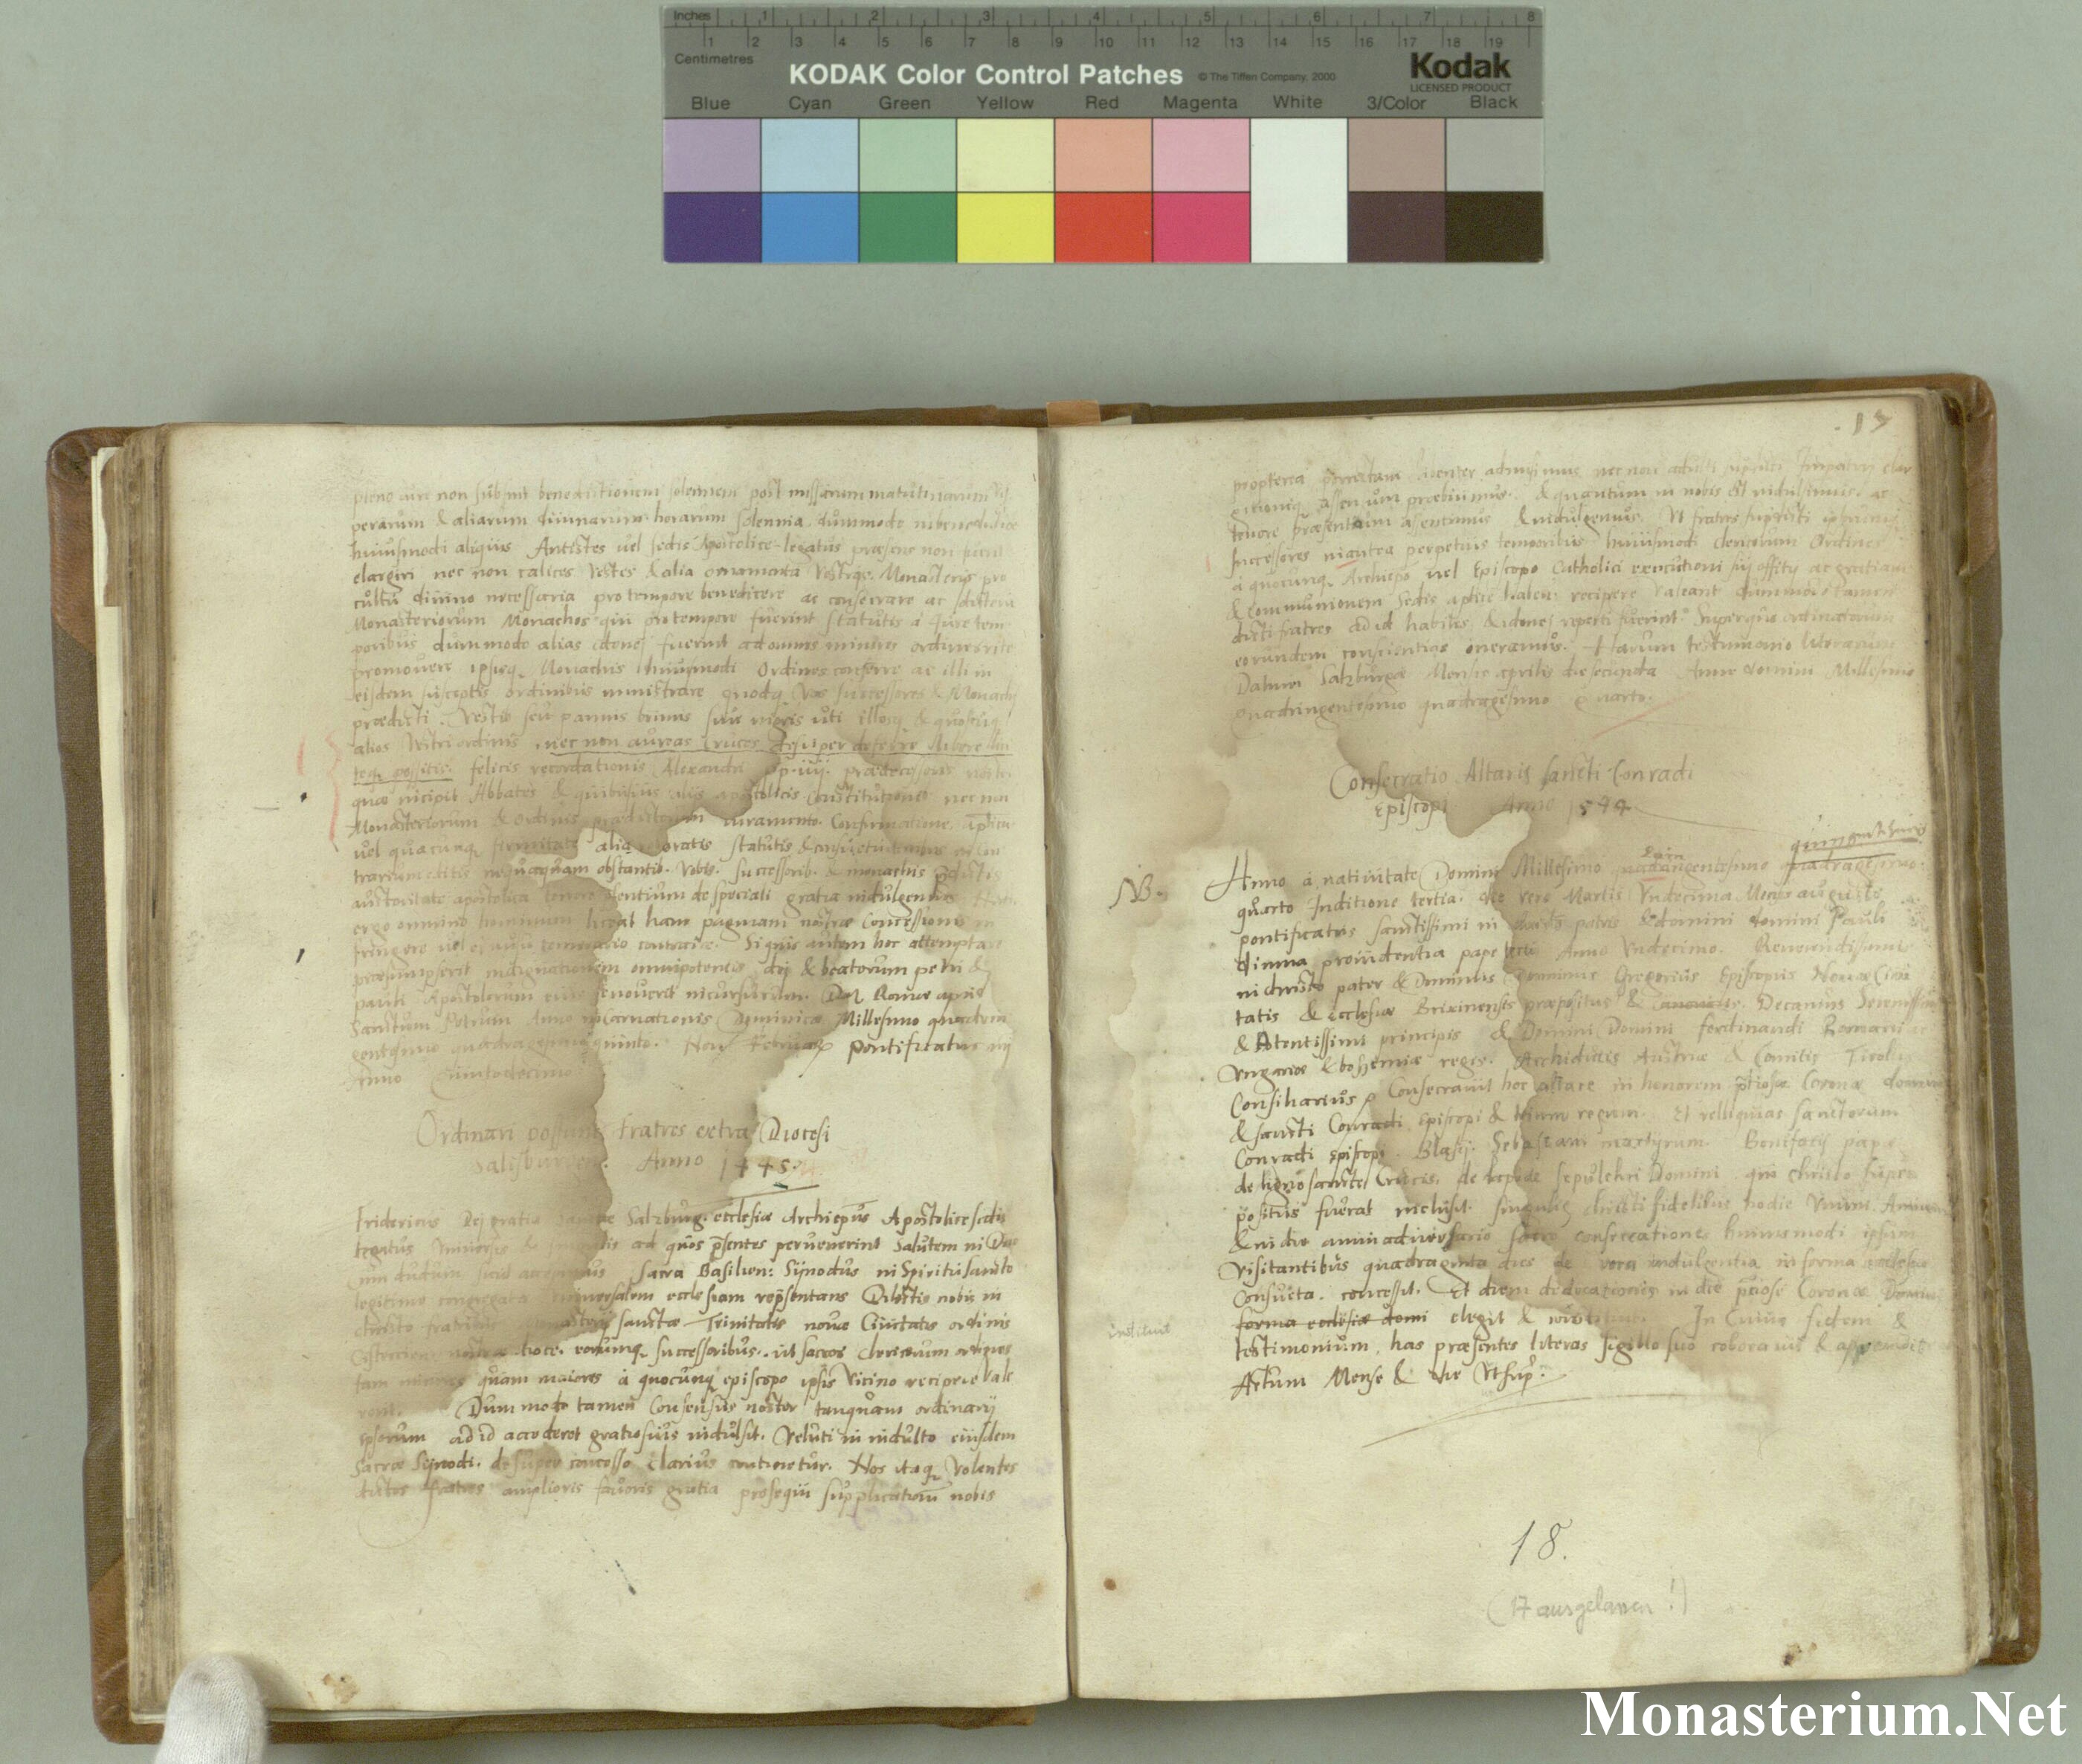 Inches 1 2 3 4 5 6 7 8
1 2 3 4 5 6 7 8 9 10 11 12 13 14 15 16 17 18 19
Centimetres
KODAK Color Control Patches © The Tiffen Company, 2000 Kodak
LICENSED PRODUCT
Blue Cyan Green Yellow Red Magenta White 3/Color Black
non benedictionem solemnem post missarum matutinarum
perarum & aliarum divinarum horarum solennia dummodo in benedictione
huiusmodi aliquis Antistes vel sedis Apostolice legatus præsens non fuerit
elargiri nec non calices vestes & alia ornamenta Monasterijs pro
cultu divino necessaria pro tempore benedicere ac consecrare ac
Monasteriorum Monachos qui pro tempore fuerint statutis a jure tem
poribus dummodo alias idonei fuerint ad omnes minores ordines rite
promovere ipsisq Monachis huiusmodi Ordines conferre ac illi in
eisdem susceptis ordinibus ministrare quodq Vos successores & Monachi
prædicti Vestib seu pannis brunis sive nigris uti
alios ordinis, nec non aureas Cruces desuper deferre libere
possitis. felicis recordationis Alexandri pp. iiij. prædecessoris nostri
quæ incipit Abbates & quibusvis alijs apostolicis Constitutionib nec non
Monasteriorum & ordinis prædictorum iuramento Confirmatione
vel quacunq firmitate alia roboratis statutis & consuetudinibus
nequaquam obstantib. Vobis. successorib. & monachis
auctoritate apostolica tenore de speciali gratia indulgemus
ergo omnino hominum liceat hanc paginam nostræ Concessionis in
fringere vel ei ausu temerario contraire. Si quis autem hoc attemptare
præsumpserit indignationem omnipotentis dei & beatorum petri &
pauli Apostolorum eius se noverit incursurum. Dat Romæ apud
Sanctum Petrum Anno incarnationis Dominicæ Millesimo quadrin
gentesimo quadragesimo quinto. Februar pontificatus
Anno Quintodecimo
Ordinari possunt fratres extra Diocesi
Salisburgen. Anno 1445.
Fridericus Dei gratia Salzburg. ecclesiæ Archiepus Apostolice sedis
legatus Universis & singulis ad quos psentes pervenerint Salutem in Dno
Cum dudum sicut accepimus Sacra Basilien: Synodus in Spiritu sancto
legitime congregata universalem ecclesiam repsentans Dilectis nobis in
christo fratribus monasterij sanctæ Trinitatis novæ Civitatis ordinis
Cistercien nostræ dioce. eorumq successoribus. ut sacros clericorum ordines
tam minores quam maiores à quocunq episcopo ipsis Vicino recipere vale
rent. Dummodo tamen Consensus noster tanquam ordinarij
ipsorum ad id accederet gratiosius indulsit. Veluti in indulto eiusdem
Sacræ Synodi. desuper concesso clarius continetur. Nos itaq Volentes
dictos fratres amplioris favoris gratia prosequi supplicationi nobis
. 13
propterea porrectam
assensum præbuimus. & quantum in nobis est indulsimus. ac
tenore præsentium assentimus & indulgemus. Ut fratres
Successores in antea perpetuis temporibus huiusmodi clericorum Ordines
a quocunq Archiepo vel Episcopo Catholici executioni sui offitij ac gratiam
& Communionem Sedis aplice haben: recipere Valeant dummodo tamen
dicti fratres ad id habiles & idonei reperti fuerint Super quo ordinatorum
eorundem conscientias oneramus. Harum testimonio literarum
Datum Salzburgæ Mense aprilis die secunda Anno domini Millesimo
Quadringentesimo quadragesimo quarto.
Consecratio Altaris Sancti Conradi
Episcopi Anno 1544
quingentesimo
NB. Anno à nativitate Domini Millesimo quadringentesimo quadragesimo
quarto Inditione tertia. die vero Martis Undecima Mensis augusti
pontificatus sanctissimi in christo patris & domini domini Pauli
divina providentia pape tertij Anno Undecimo. Reverendissimus
in christo pater & Dominus Dominus Gregorius Episcopus Novæ Civi
tatis & ecclesiæ Brixinensis præpositus & Decanus Serenissimi
& Potentissimi principis & Domini Domini ferdinandi Romani ac
Ungariæ & bohemiæ regis. Archiducis Austriæ & Comitis Tirolis
Consiliarius Consecravit hoc altare in honorem ptiosæ Coronæ domini
& sancti Conradi Episcopi & trium regum. Et relliquias sanctorum
Conradi episcopi. Blasij. Sebastiani martyrum. Bonifacij papæ
de ligno sanctæ Crucis. de lapide sepulchri Domini qui christo super
positus fuerat inclusit. singulis christi fidelibus hodie Unum Annum
& in die anniversario consecrationis huiusmodi ipsum
Visitantibus quadraginta dies de vera indulgentia in forma ecclesiæ
Consueta. concessit. Et diem dedicationis in die ptiosæ Coronæ Domini
forma ecclesiæ domi elegit & instituit In Cuius fidem &
instituit
testimonium has præsentes literas sigillo suo
Actum Mense & die Ut sup.
18.
(17 ausgelassen!)
Monasterium.Net